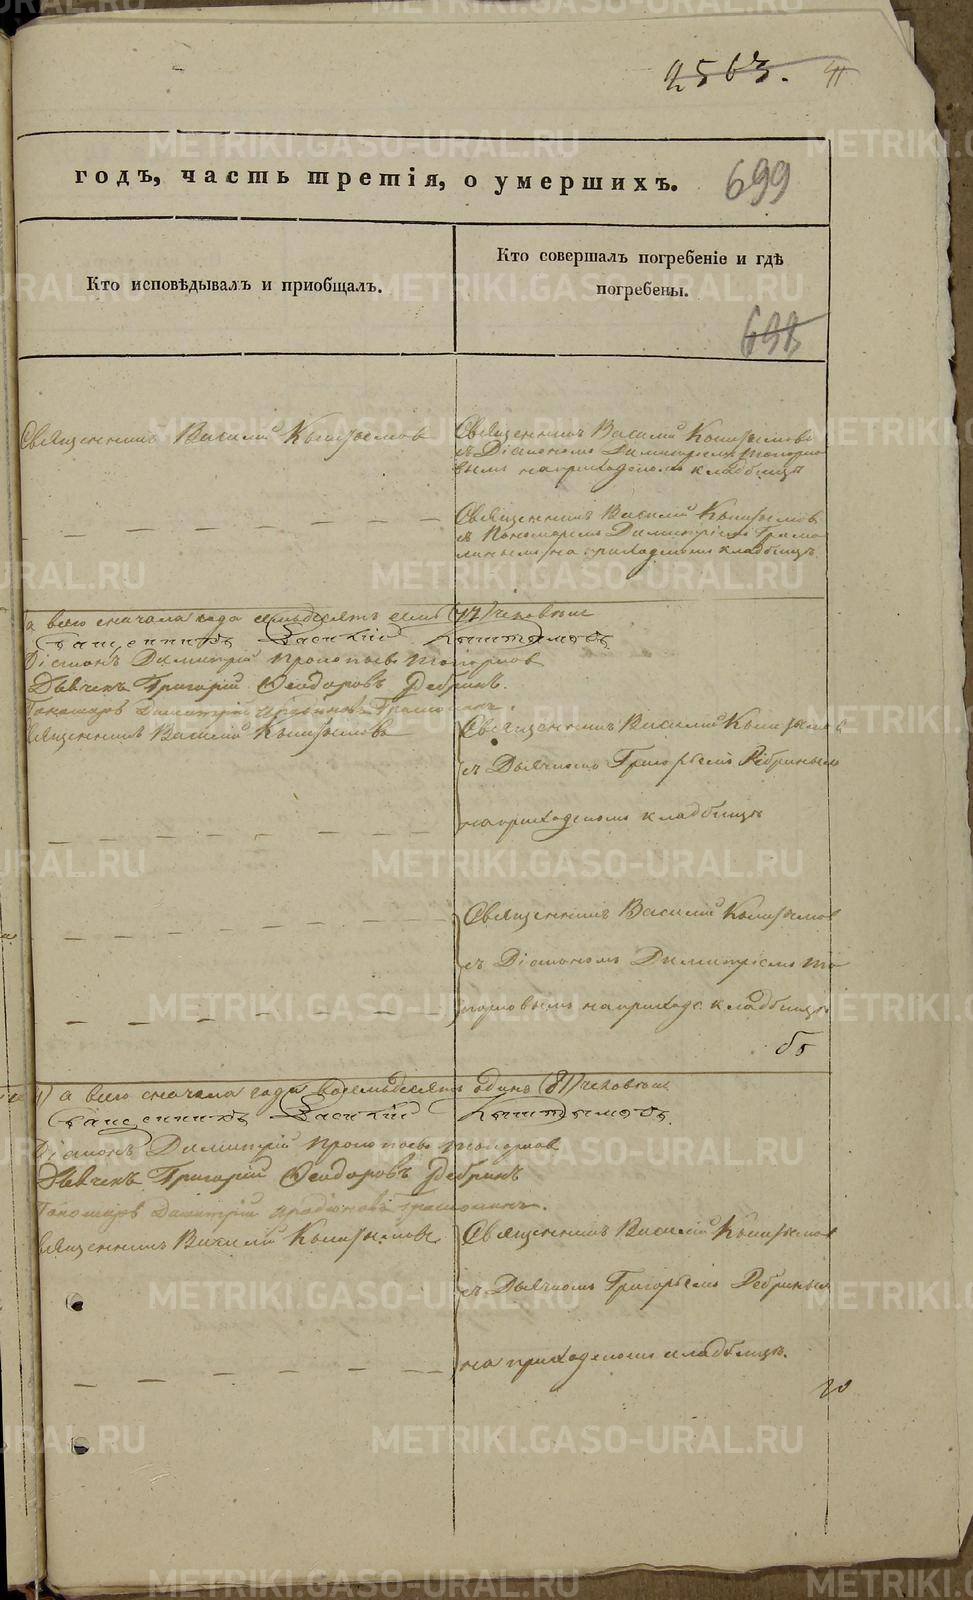 2563.
годъ, часть третія, о умершихъ.
699
Кто исповѣдывалъ и приобщалъ.
Кто совершалъ погребеніе и гдѣ
погребены.
698
Священникъ Василій Кыштымовъ
Священникъ Василій Кыштымовъ
съ Діакономъ Димитріемъ Топорко
вымъ на приходскомъ кладбищѣ
Священникъ Василій Кыштымовъ
съ Пономаремъ Димитріемъ
на приходскомъ кладбищѣ.
а всего сначала года семьдесятъ семь (77) человѣкъ
Священникъ Василій Кыштымовъ
Діаконъ Димитрій
Дьячекъ Григорій Ѳеодоровъ Ребринъ.
Пономарь Димитрій
Священникъ Василій Кыштымовъ
Священникъ Василій Кыштымовъ
съ Дьячкомъ Григорьемъ Ребринымъ
на приходскомъ кладбищѣ
Священникъ Василій Кыштымовъ
съ Діакономъ Димитріемъ То
порковымъ на приходс. кладбищѣ.
а всего сначала года восемьдесятъ одинъ (81) человѣкъ
Священникъ Василій Кыштымовъ.
Діаконъ Димитрій
Дьячекъ Григорій Ѳеодоровъ Ребринъ
Пономарь Димитрій
Священникъ Василій Кыштымовъ
Священникъ Василій Кыштымовъ
съ Дьячкомъ Григорьемъ Ребринымъ
на приходскомъ кладбищѣ.
METRIKI.GASO-URAL.RU